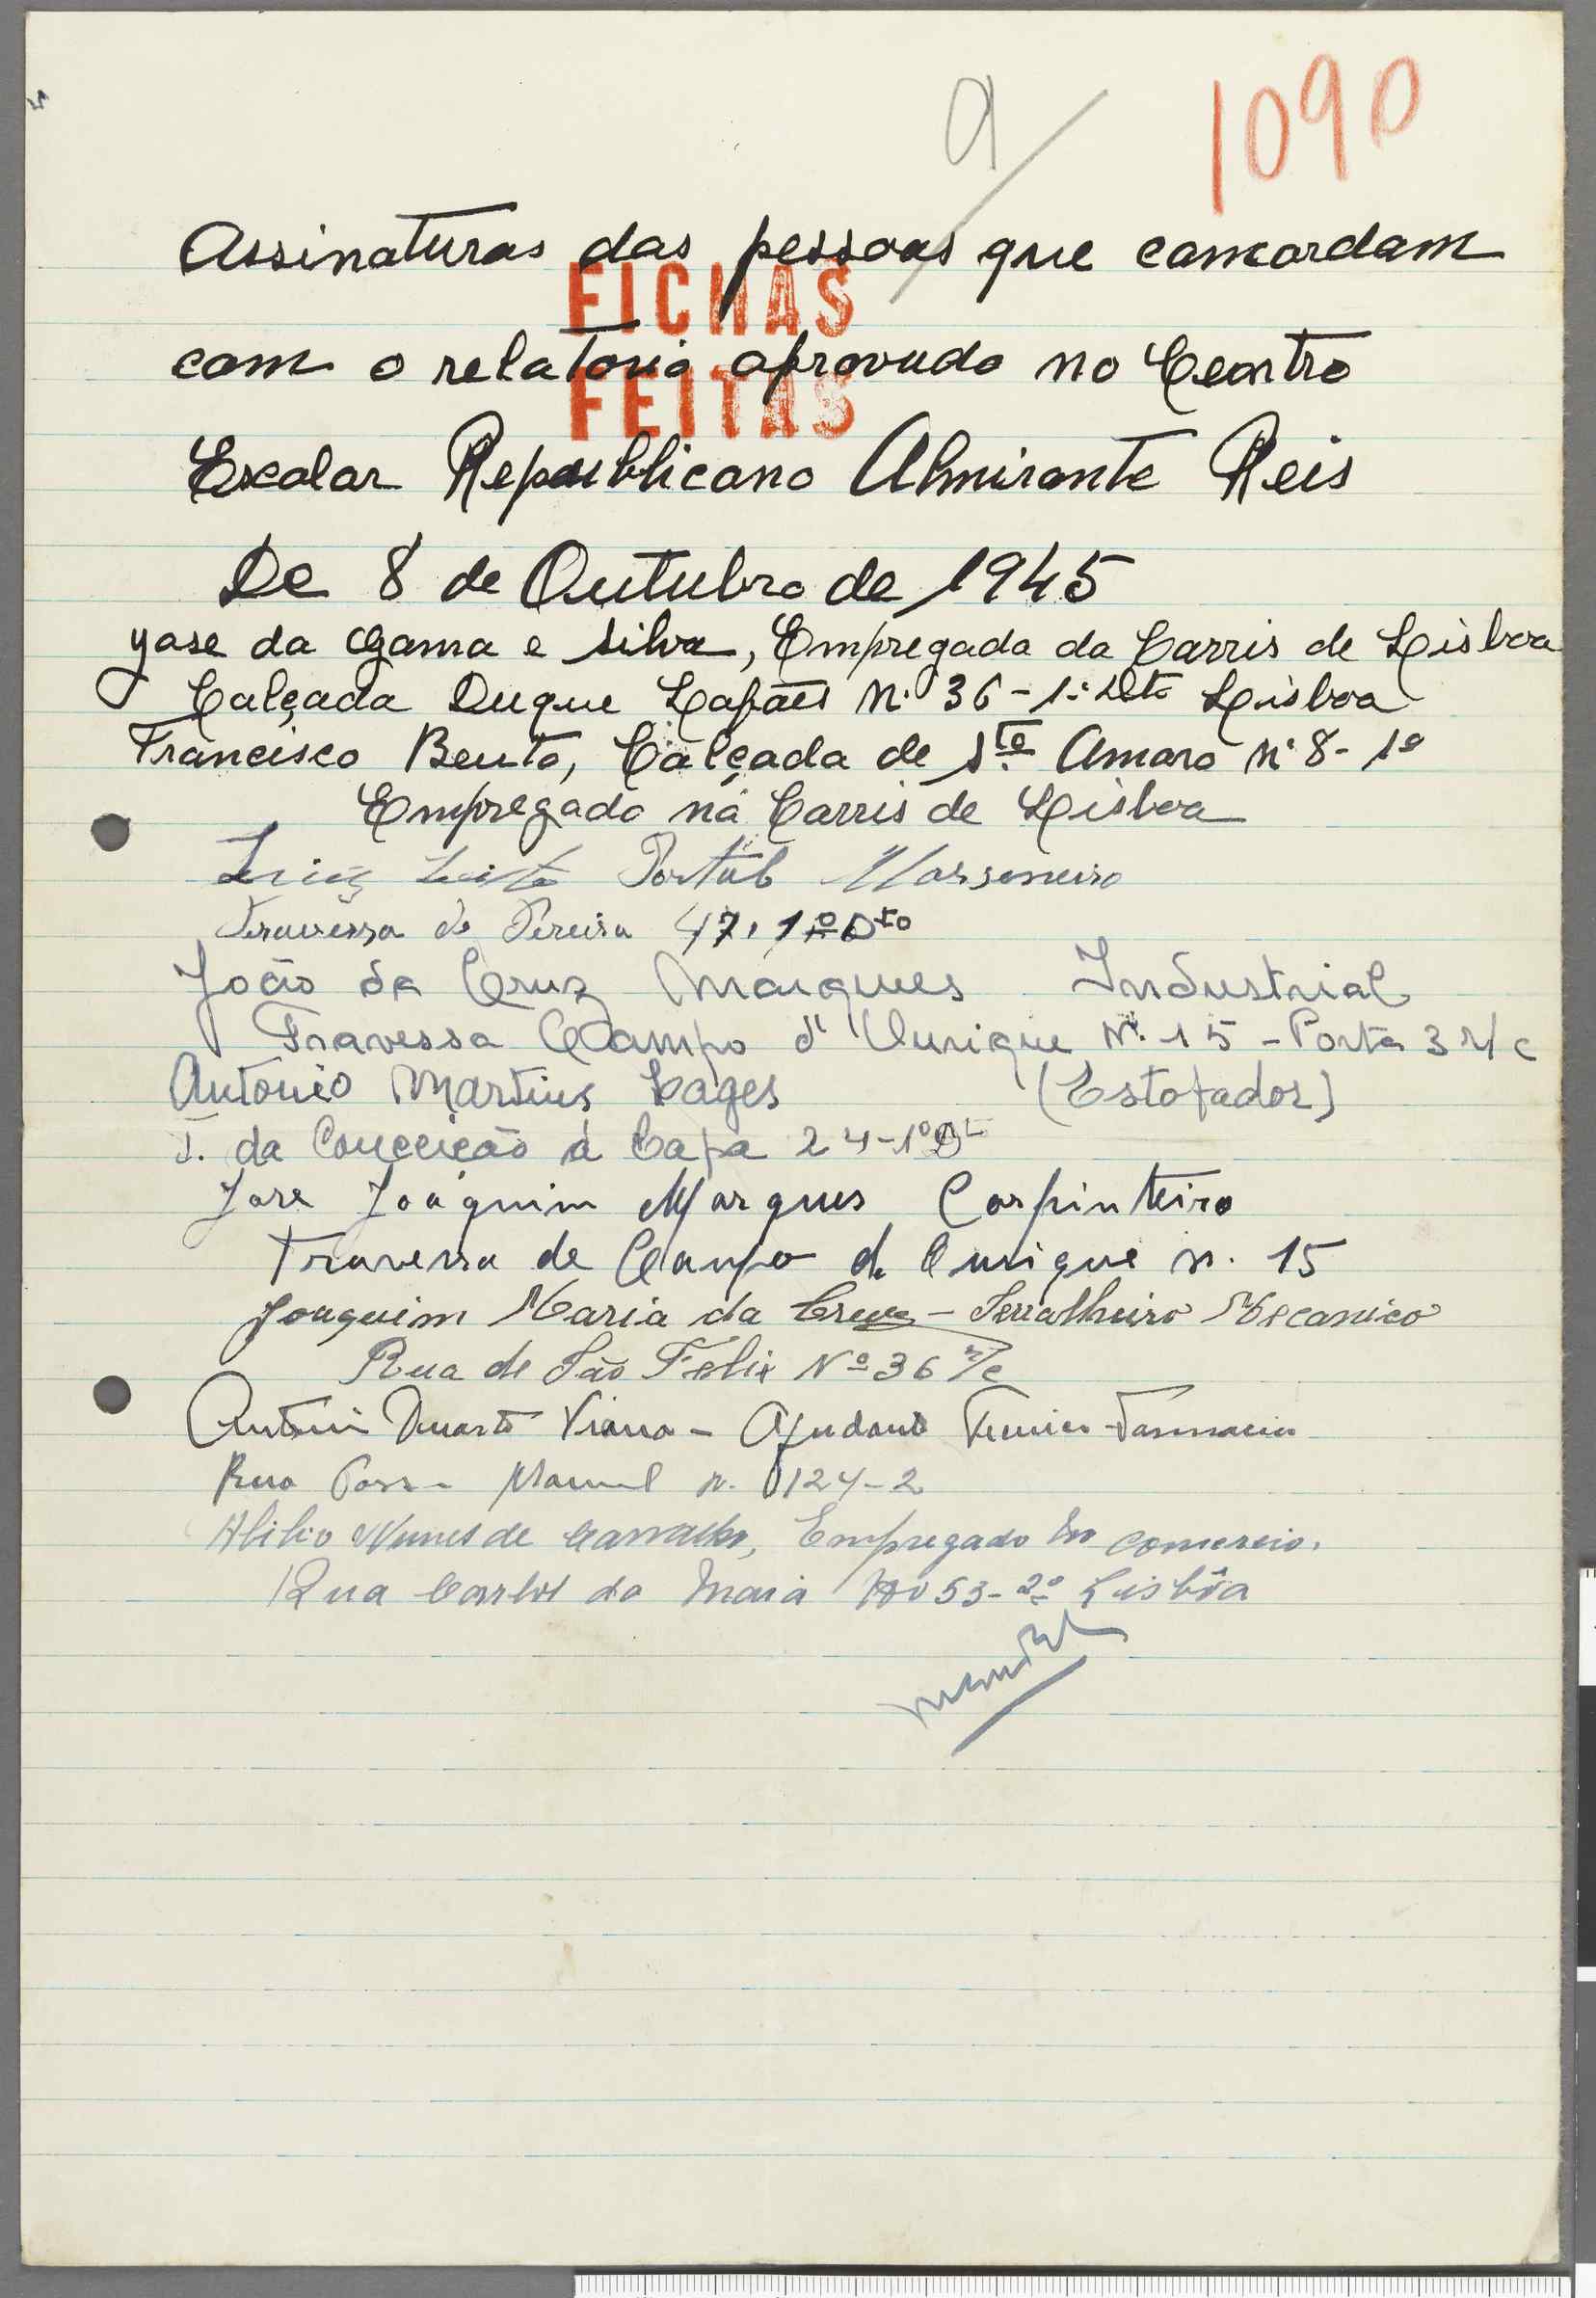 a/ 1090
Assinaturas das pessoas que concordam
FICHAS
com o relatorio aprovado no Centro
FEITAS
Escolar Republicano Almirante Reis
De 8 de Outubro de 1945
Jose da Gama e Silva, Empregado da Carris de Lisboa
Calçada Duque Lafões Nº 36-1º Dto Lisboa
Francisco Bento, Calçada de Sto Amaro nº 8-1º
Empregado na Carris de Lisboa
Luiz Leite Marseneiro
Travessa do Pereira 47, 1º Dto
João da Cruz Marques Industrial
Travessa Campo d'Ourique Nº 15 - Porta 3 r/c
Antonio Martins Lages (Estofador)
T. da Conceição á 24-1º Dt
Jose Joaquim Marques Carpinteiro
Travessa de Campo de Ourique n. 15
Joaquim Maria da Cruz - Serralheiro Mecanico
Rua de São Felix Nº 36 r/c
Antonio Duarte Viana - Ajudante Tecnico Farmacia
Rua Passos Manuel n. 124-2
Abilio Nunes de Carvalho, Empregado no comercio.
Rua Carlos da Maia Nº 53-2º Lisbôa